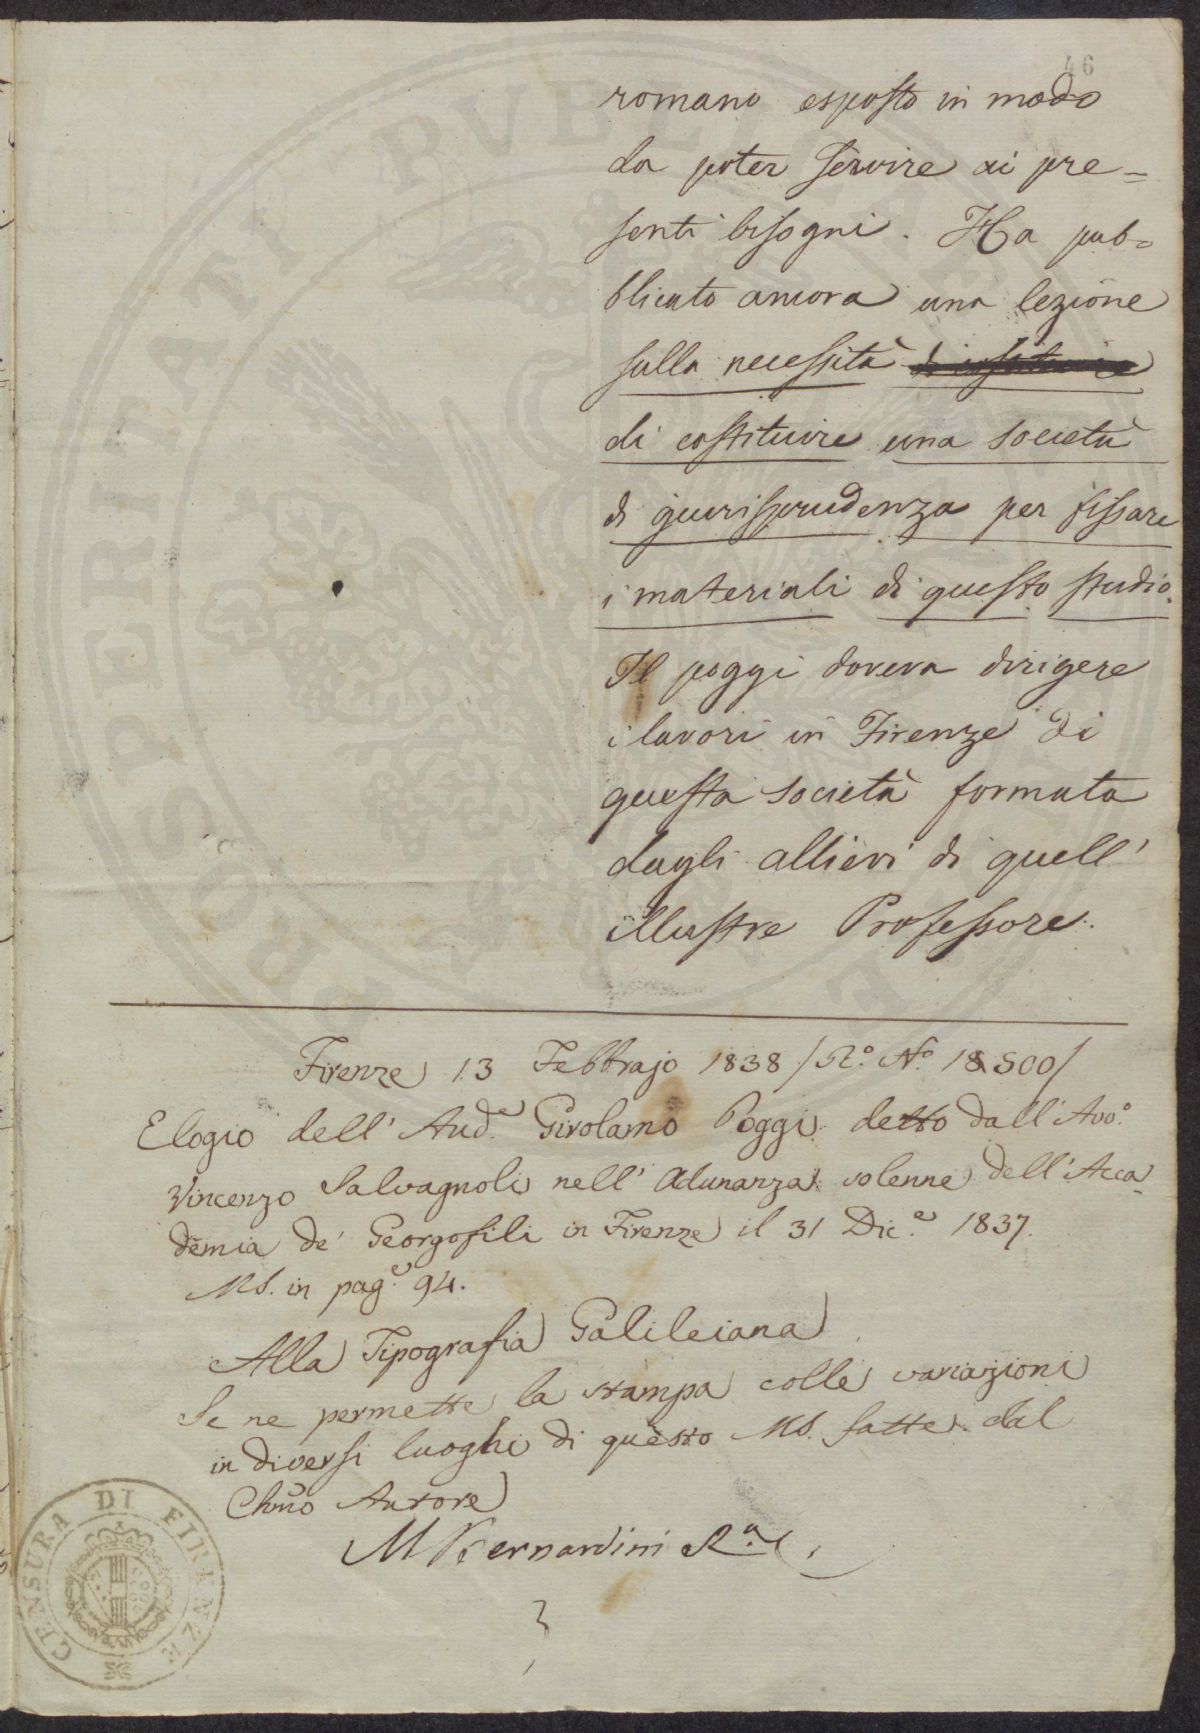 46
romano esposto in modo
da poter servire ai pre=
senti bisogni. Ha pub=
blicato ancora una lezione
sulla necessità
di costituire una società
di giurisprudenza per fissare
i materiali di questo studio.
Il poggi doveva dirigere
i lavori in Firenze di
questa società formata
dagli allievi di quell'
illustre Professore.
Firenze 13 Febbrajo 1838 /R.º N.º 18500/
Elogio dell' Aud.e Girolamo Poggi detto dall' Avv.º
Vincenzo Salvagnoli nell' Adunanza solenne dell' Acca=
demia de' Georgofili in Firenze il 31 Dic.e 1837.
MS. in pag.e 94.
Alla Tipografia Galileiana
Se ne permette la stampa colle variazioni
in diversi luoghi di questo MS. fatte dal
Chmo Autore
M Bernardini R.e
CENSURA DI FIRENZE
PROSPERITATI PVBLICAE